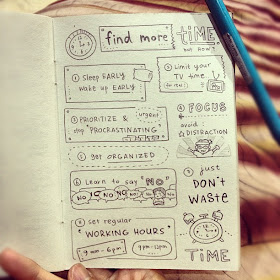 find more TiME
but How?
① Sleep EARLY
wake up EARLY
② Limit your
TV time
(or less)
③ PRIORITIZE &
stop PROCRASTINATING
urgent
④ FOCUS
avoid
DISTRACTION
⑤ get ORGANIZED
⑥ Learn to say "NO"
NO NO NO NO NO
⑦ just
DON'T
WASTE
TiME
⑧ set regular
WORKING HOURS
9am-6pm
9pm-12pm